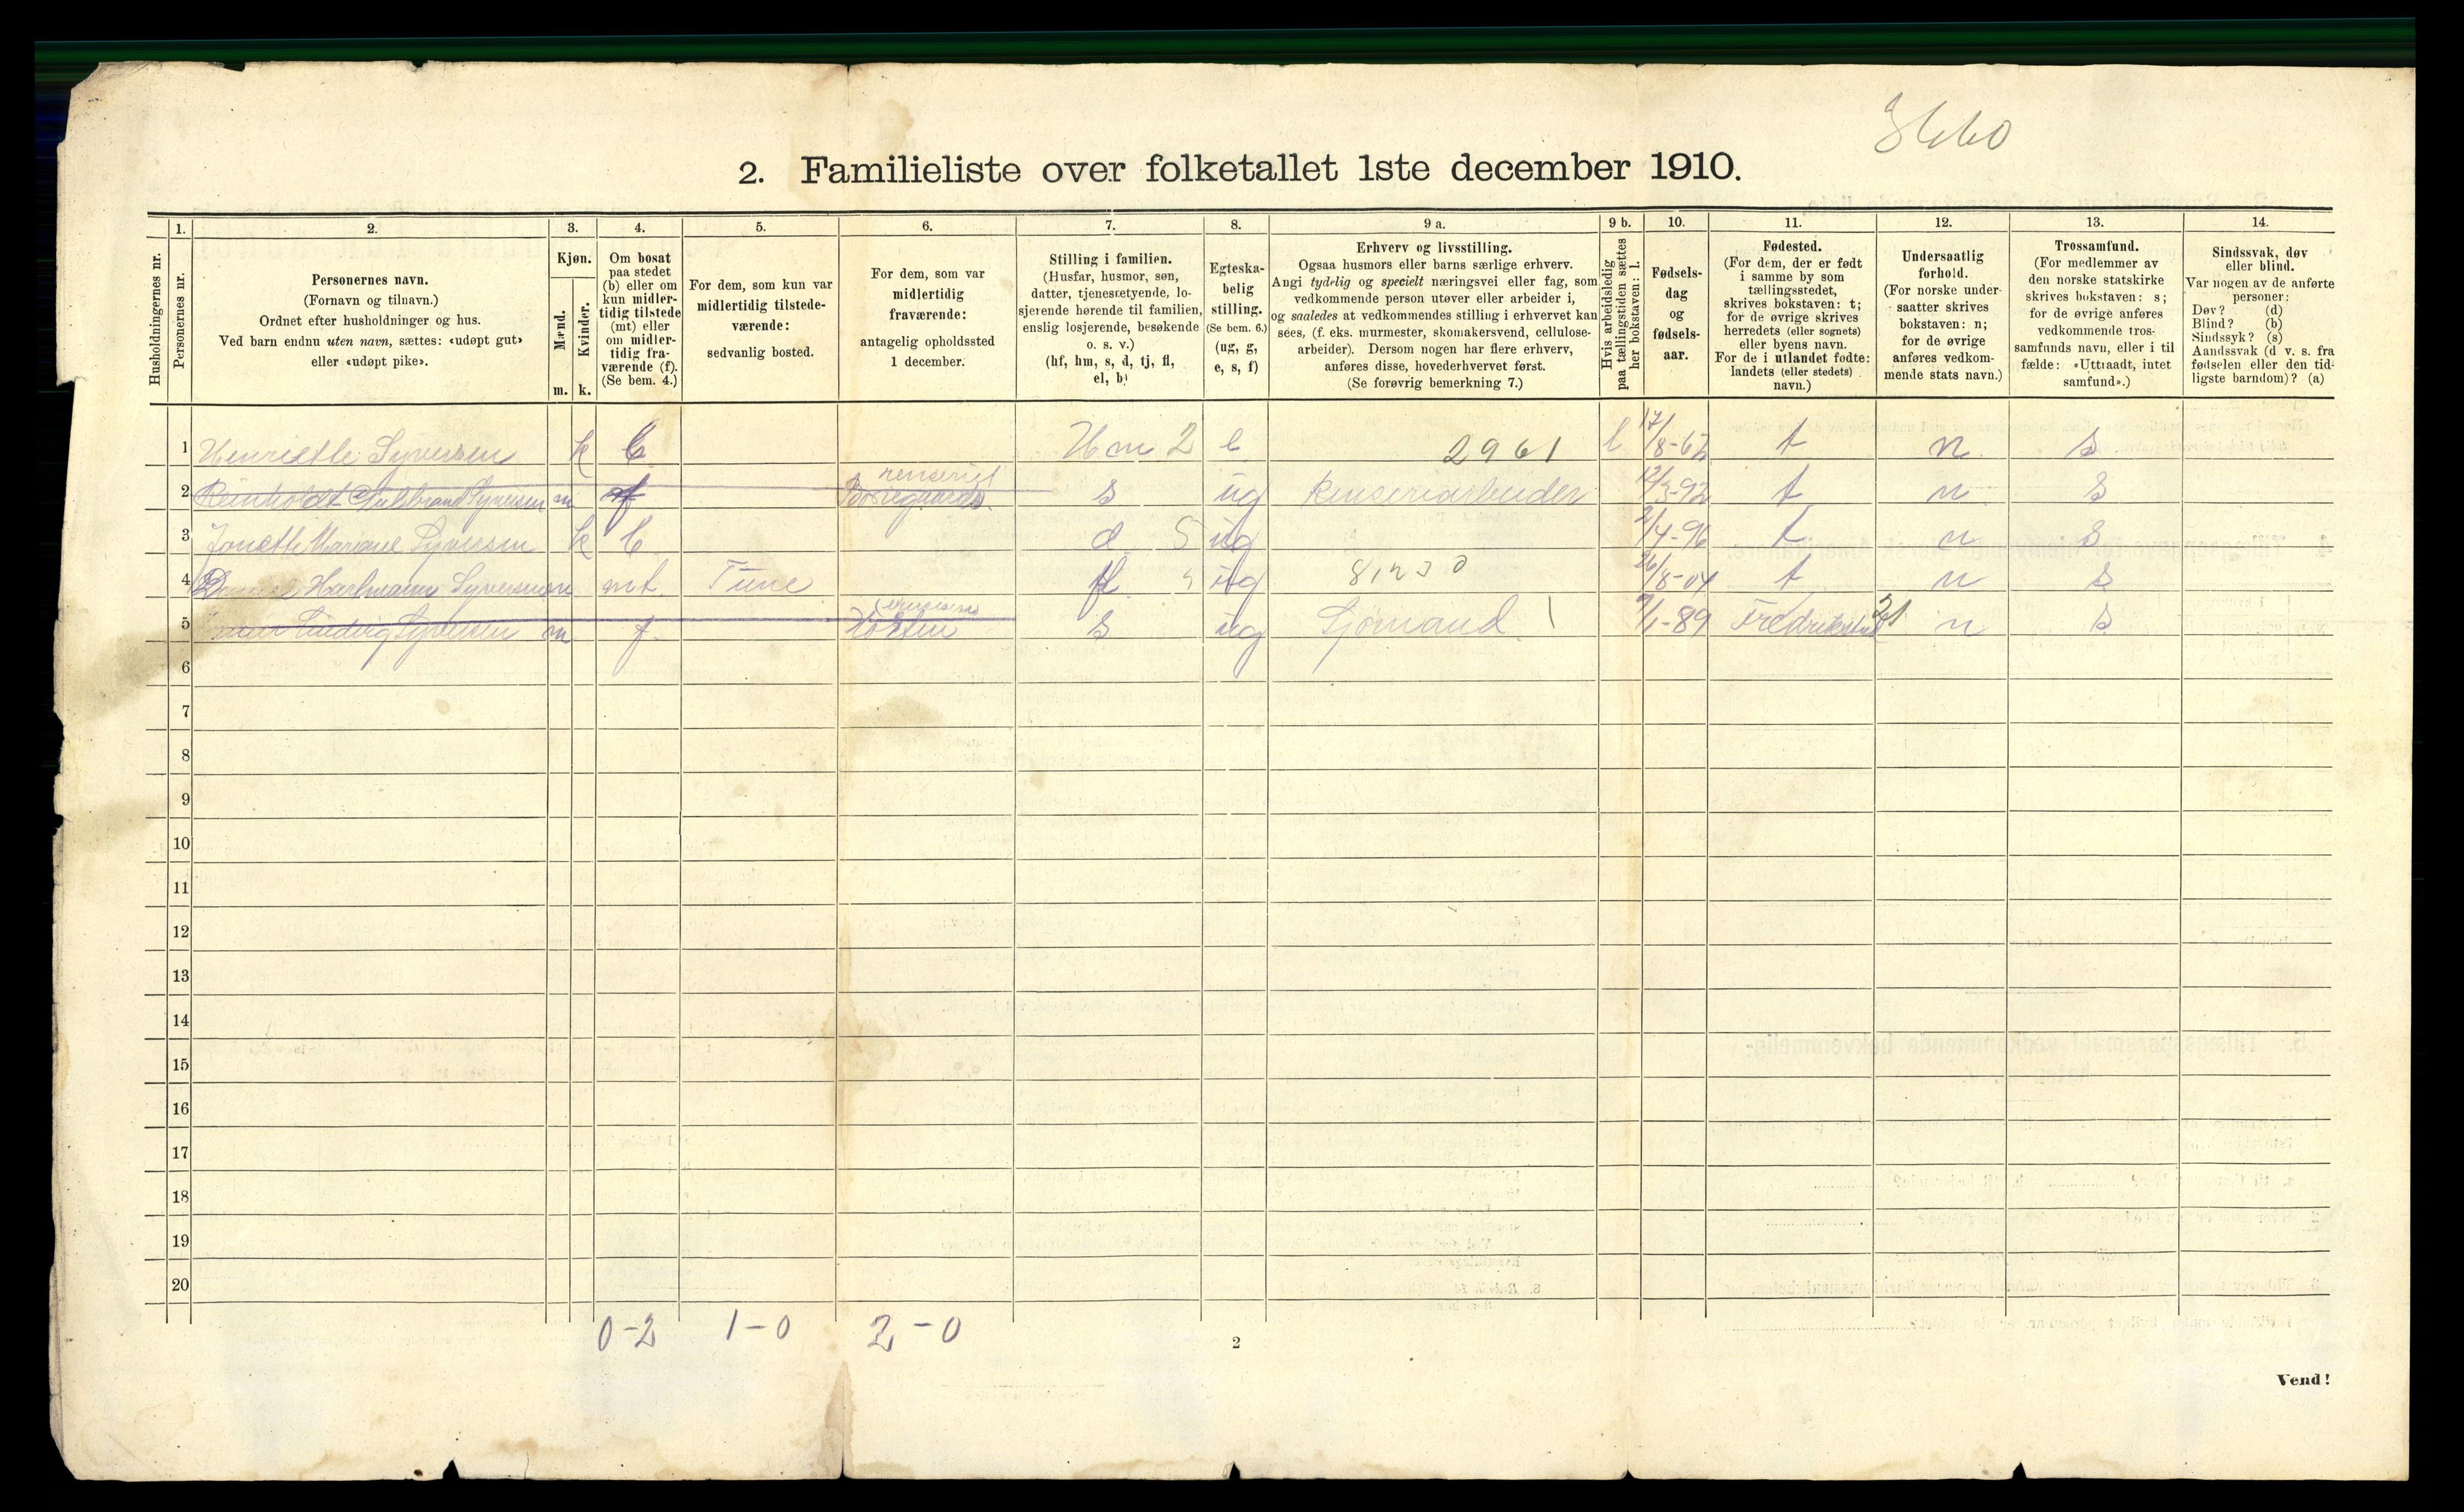 3660
2. Familieliste over folketallet 1ste december 1910.
Husholdningernes nr.
Personernes nr.
1. 2. 3. 4. 5. 6. 7. 8. 9 a. 9 b. 10. 11. 12. 13. 14.
Personernes navn.
(Fornavn og tilnavn.)
Ordnet efter husholdninger og hus.
Ved barn endnu uten navn, sættes: «udøpt gut»
eller «udøpt pike».
Kjøn.
Mænd.
Kvinder.
m. k.
Om bosat
paa stedet
(b) eller om
kun midler-
tidig tilstede
(mt) eller
om midler-
tidig fra-
værende (f).
(Se bem. 4.)
For dem, som kun var
midlertidig tilstede-
værende:
sedvanlig bosted.
For dem, som var
midlertidig
fraværende:
antagelig opholdssted
1 december.
Stilling i familien.
(Husfar, husmor, søn,
datter, tjenestetyende, lo-
sjerende hørende til familien,
enslig losjerende, besøkende
o. s. v.)
(hf, hm, s, d, tj, fl,
el, b)
Egteska-
belig
stilling.
(Se bem. 6.)
(ug, g,
e, s, f)
Erhverv og livsstilling.
Ogsaa husmors eller barns særlige erhverv.
Angi tydelig og specielt næringsvei eller fag, som
vedkommende person utøver eller arbeider i,
og saaledes at vedkommendes stilling i erhvervet kan
sees, (f. eks. murmester, skomakersvend, cellulose-
arbeider). Dersom nogen har flere erhverv,
anføres disse, hovederhvervet først.
(Se forøvrig bemerkning 7.)
Hvis arbeidsledig
paa tællingstiden sættes
her bokstaven: l.
Fødsels-
dag
og
fødsels-
aar.
Fødested.
(For dem, der er født
i samme by som
tællingsstedet,
skrives bokstaven: t;
for de øvrige skrives
herredets (eller sognets)
eller byens navn.
For de i utlandet fødte:
landets (eller stedets)
navn.)
Undersaatlig
forhold.
(For norske under-
saatter skrives
bokstaven: n;
for de øvrige
anføres vedkom-
mende stats navn.)
Trossamfund.
(For medlemmer av
den norske statskirke
skrives bokstaven: s;
for de øvrige anføres
vedkommende tros-
samfunds navn, eller i til
fælde: «Uttraadt, intet
samfund».)
Sindssvak, døv
eller blind.
Var nogen av de anførte
personer:
Døv? (d)
Blind? (b)
Sindssyk? (s)
Aandssvak (d v. s. fra
fødselen eller den tid-
ligste barndom)? (a)
1 Henriette Syversen k b Hm 2 e 2961 l 17/8-62 t n s
2 Reinholdt Gulbrand Syversen m f s ug Renseriarbeider 12/3-92 t n s
3 Jonette Mariane Syversen k b d 5 ug 2/4-96 t n s
4 Hartmann Syversen m mt Tune fl ug 26/8-04 t n s
5 Ludvig Syversen m f s ug Sjømand 1 9/1-89 Fredrikstad 21 n s
6
7
8
9
10
11
12
13
14
15
16
17
18
19
20
0-2 1-0 2-0
2
Vend!